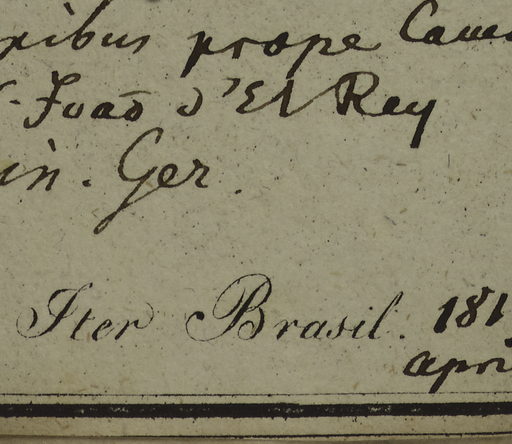 ribus prope Cam
S. Joaõ d'El Rey
in. Ger.
Iter Brasil. 181
apri